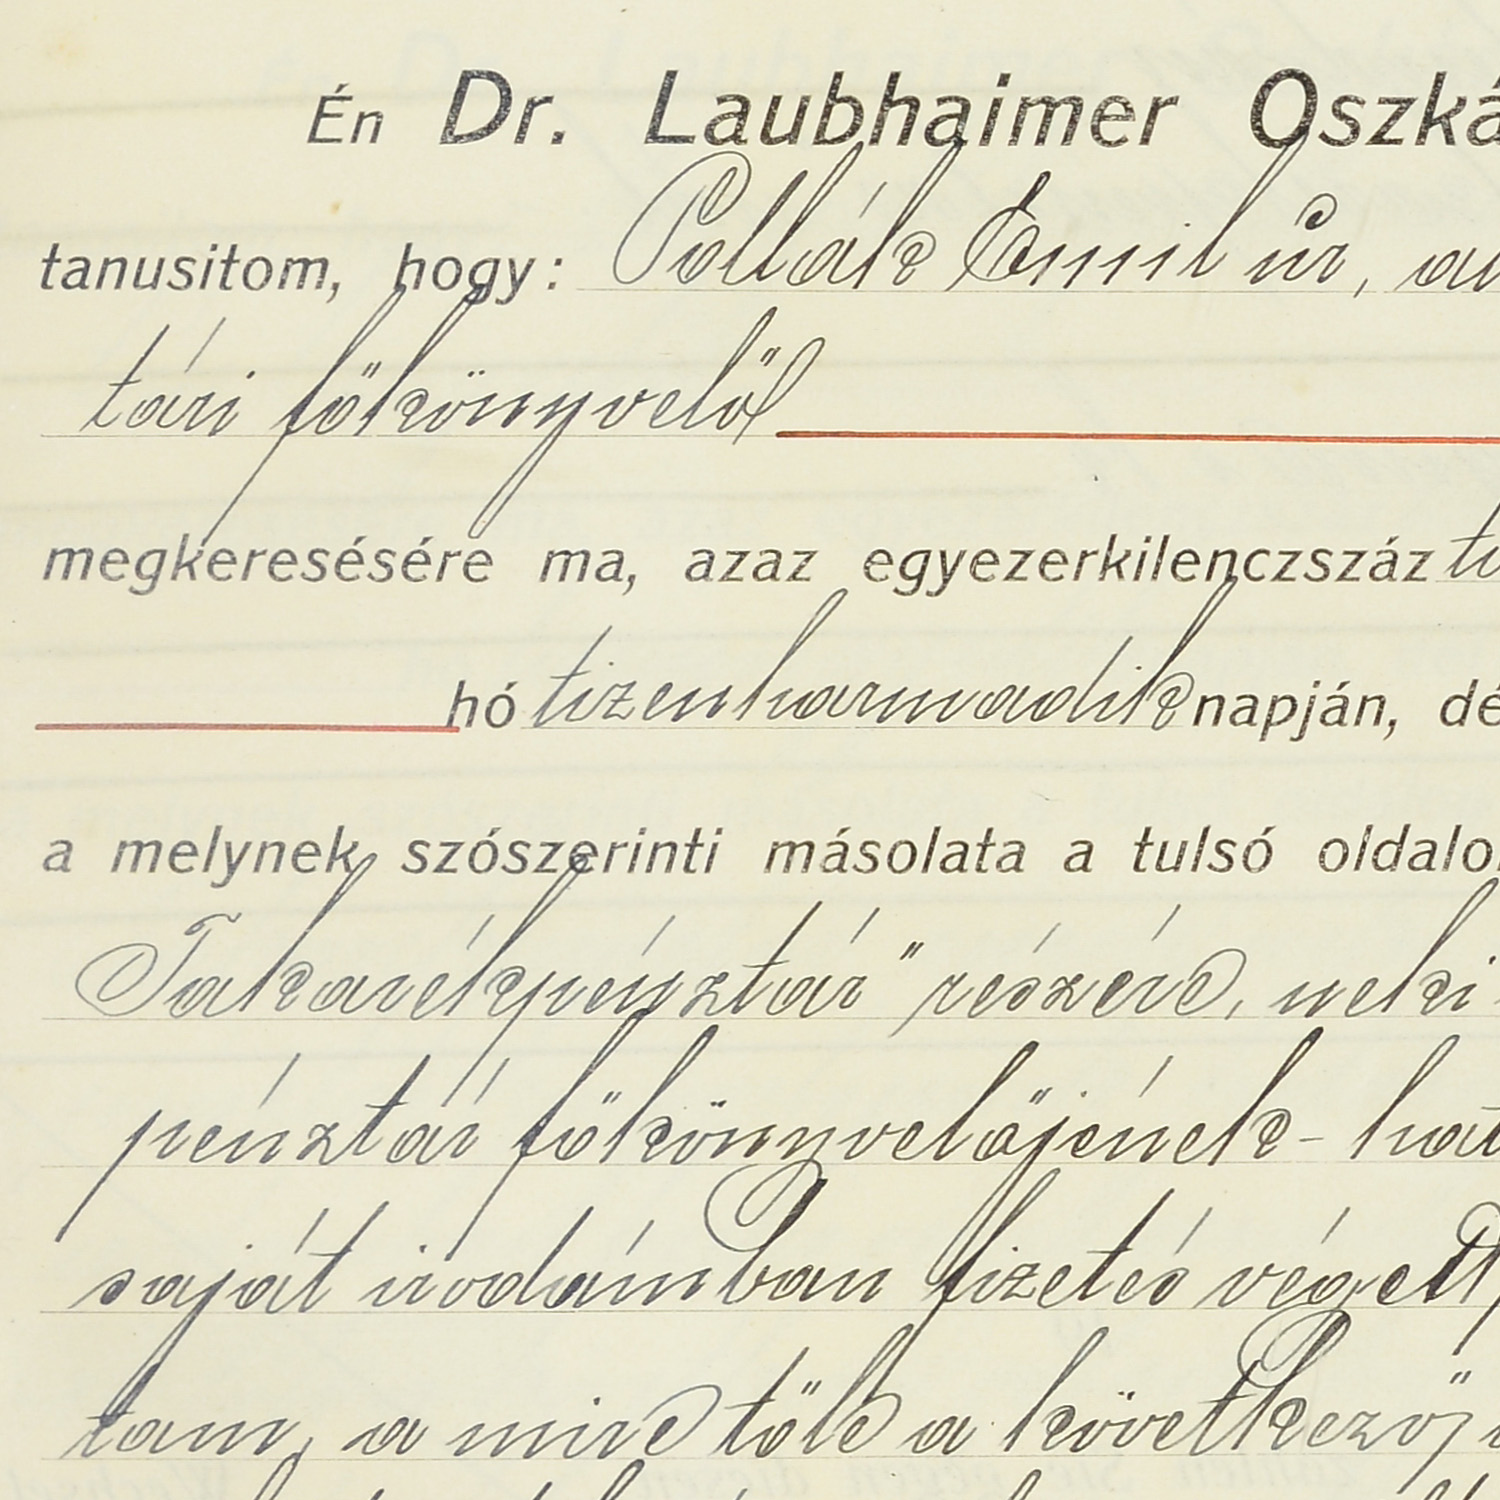 Én Dr. Laubhaimer Oszká
tanusitom, hogy: Pollák Emil úr, a
tári főkönyvelő
megkeresésére ma, azaz egyezerkilenczszáz ti
hó tizenharmadik napján, dé
a melynek szószerinti másolata a tulsó oldalo
Takarékpénztár" részére, neki
pénztár főkönyvelőjének - hat
saját irodámban fizetés végett
tam, a mire tőle a következő